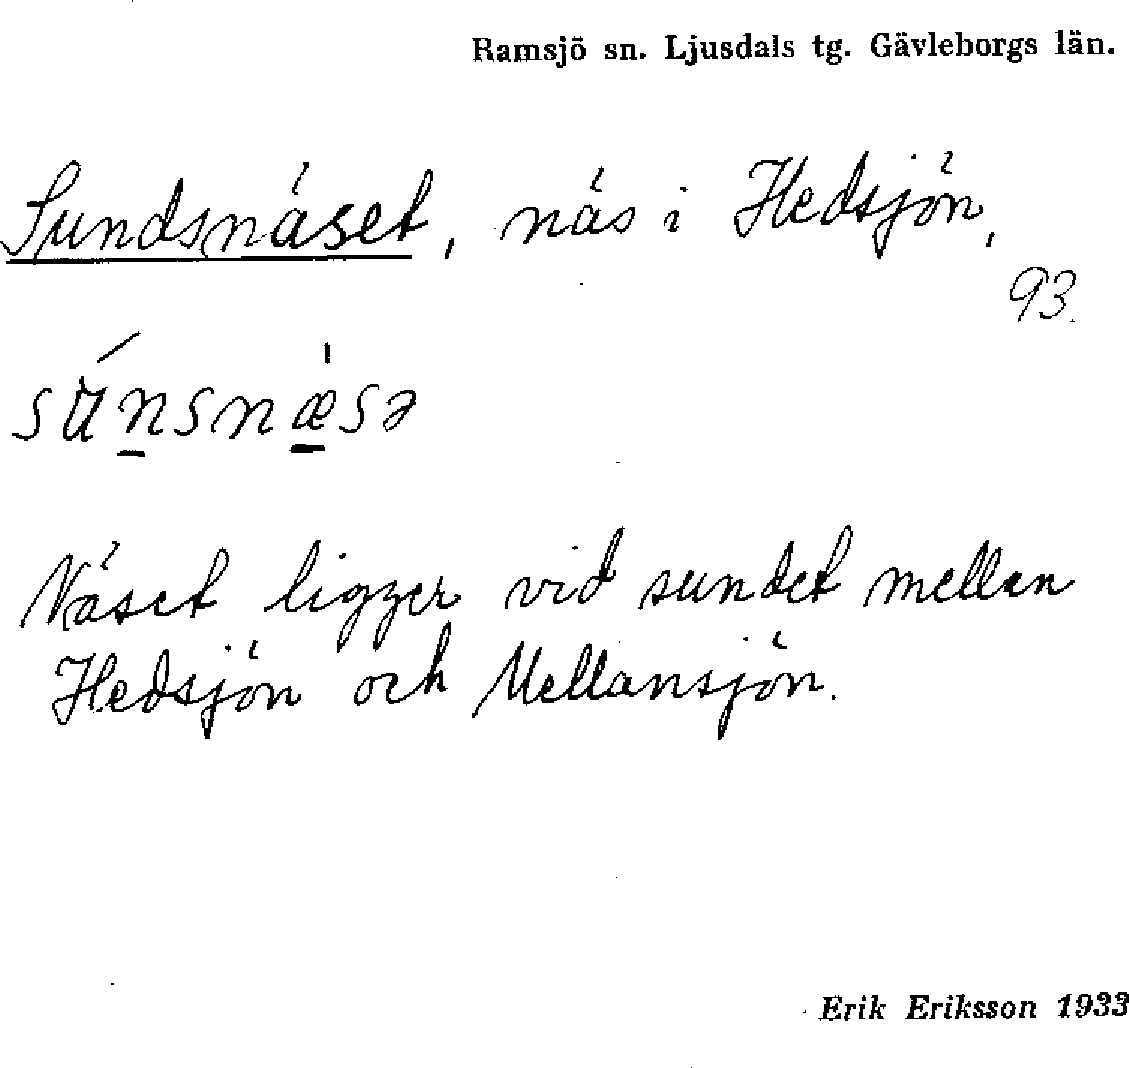 Ramsjö sn. Ljusdals tg. Gävleborgs län.
Sundsnäset, näs i Hedsjön,
93.
Näset ligger vid sundet mellan
Hedsjön och Mellansjön.
Erik Eriksson 1933